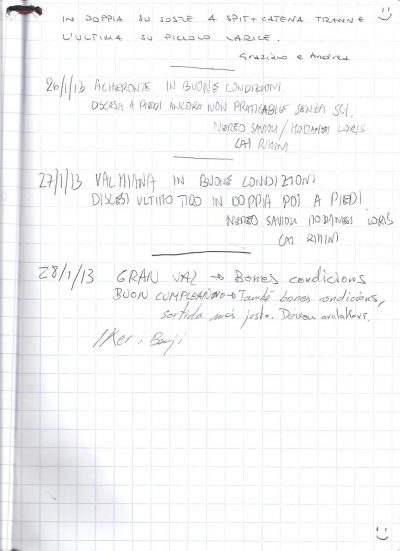 IN DOPPIA SU SOSTE A SPIT + CATENA TRANNE
L'ULTIMA SU PICCOLO LARICE.
Graziano e Andrea
26/1/13 ACHERONTE IN BUONE CONDIZIONI.
DISCESA A PIEDI ANCORA NON PRATICABILE SENZA SCI.
NEREO SAVIOLI / MODANESI LORIS
CAI RIMINI
27/1/13 VALMIANA IN BUONE CONDIZIONI
DISCESI ULTIMO TIRO IN DOPPIA POI A PIEDI.
NEREO SAVIOLI MODANESI LORIS
CAI RIMINI
28/1/13 GRAN VAL → Bones condicions
BUON CUMPLEANNO → També bones condicions,
sortida més justa. Deixem
Iker i Benji